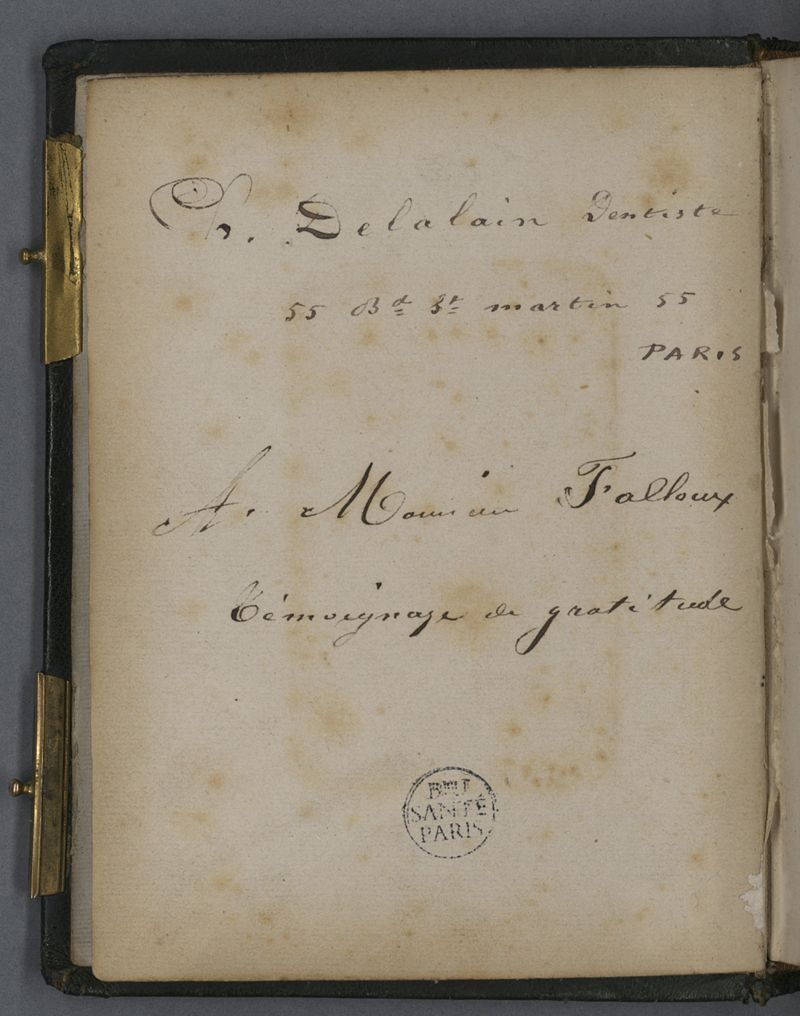 Ch. Delalain Dentiste
55 Bd St martin 55
PARIS
A. Monsieur Falloux
Témoignage de gratitude
BIU
SANTÉ
PARIS